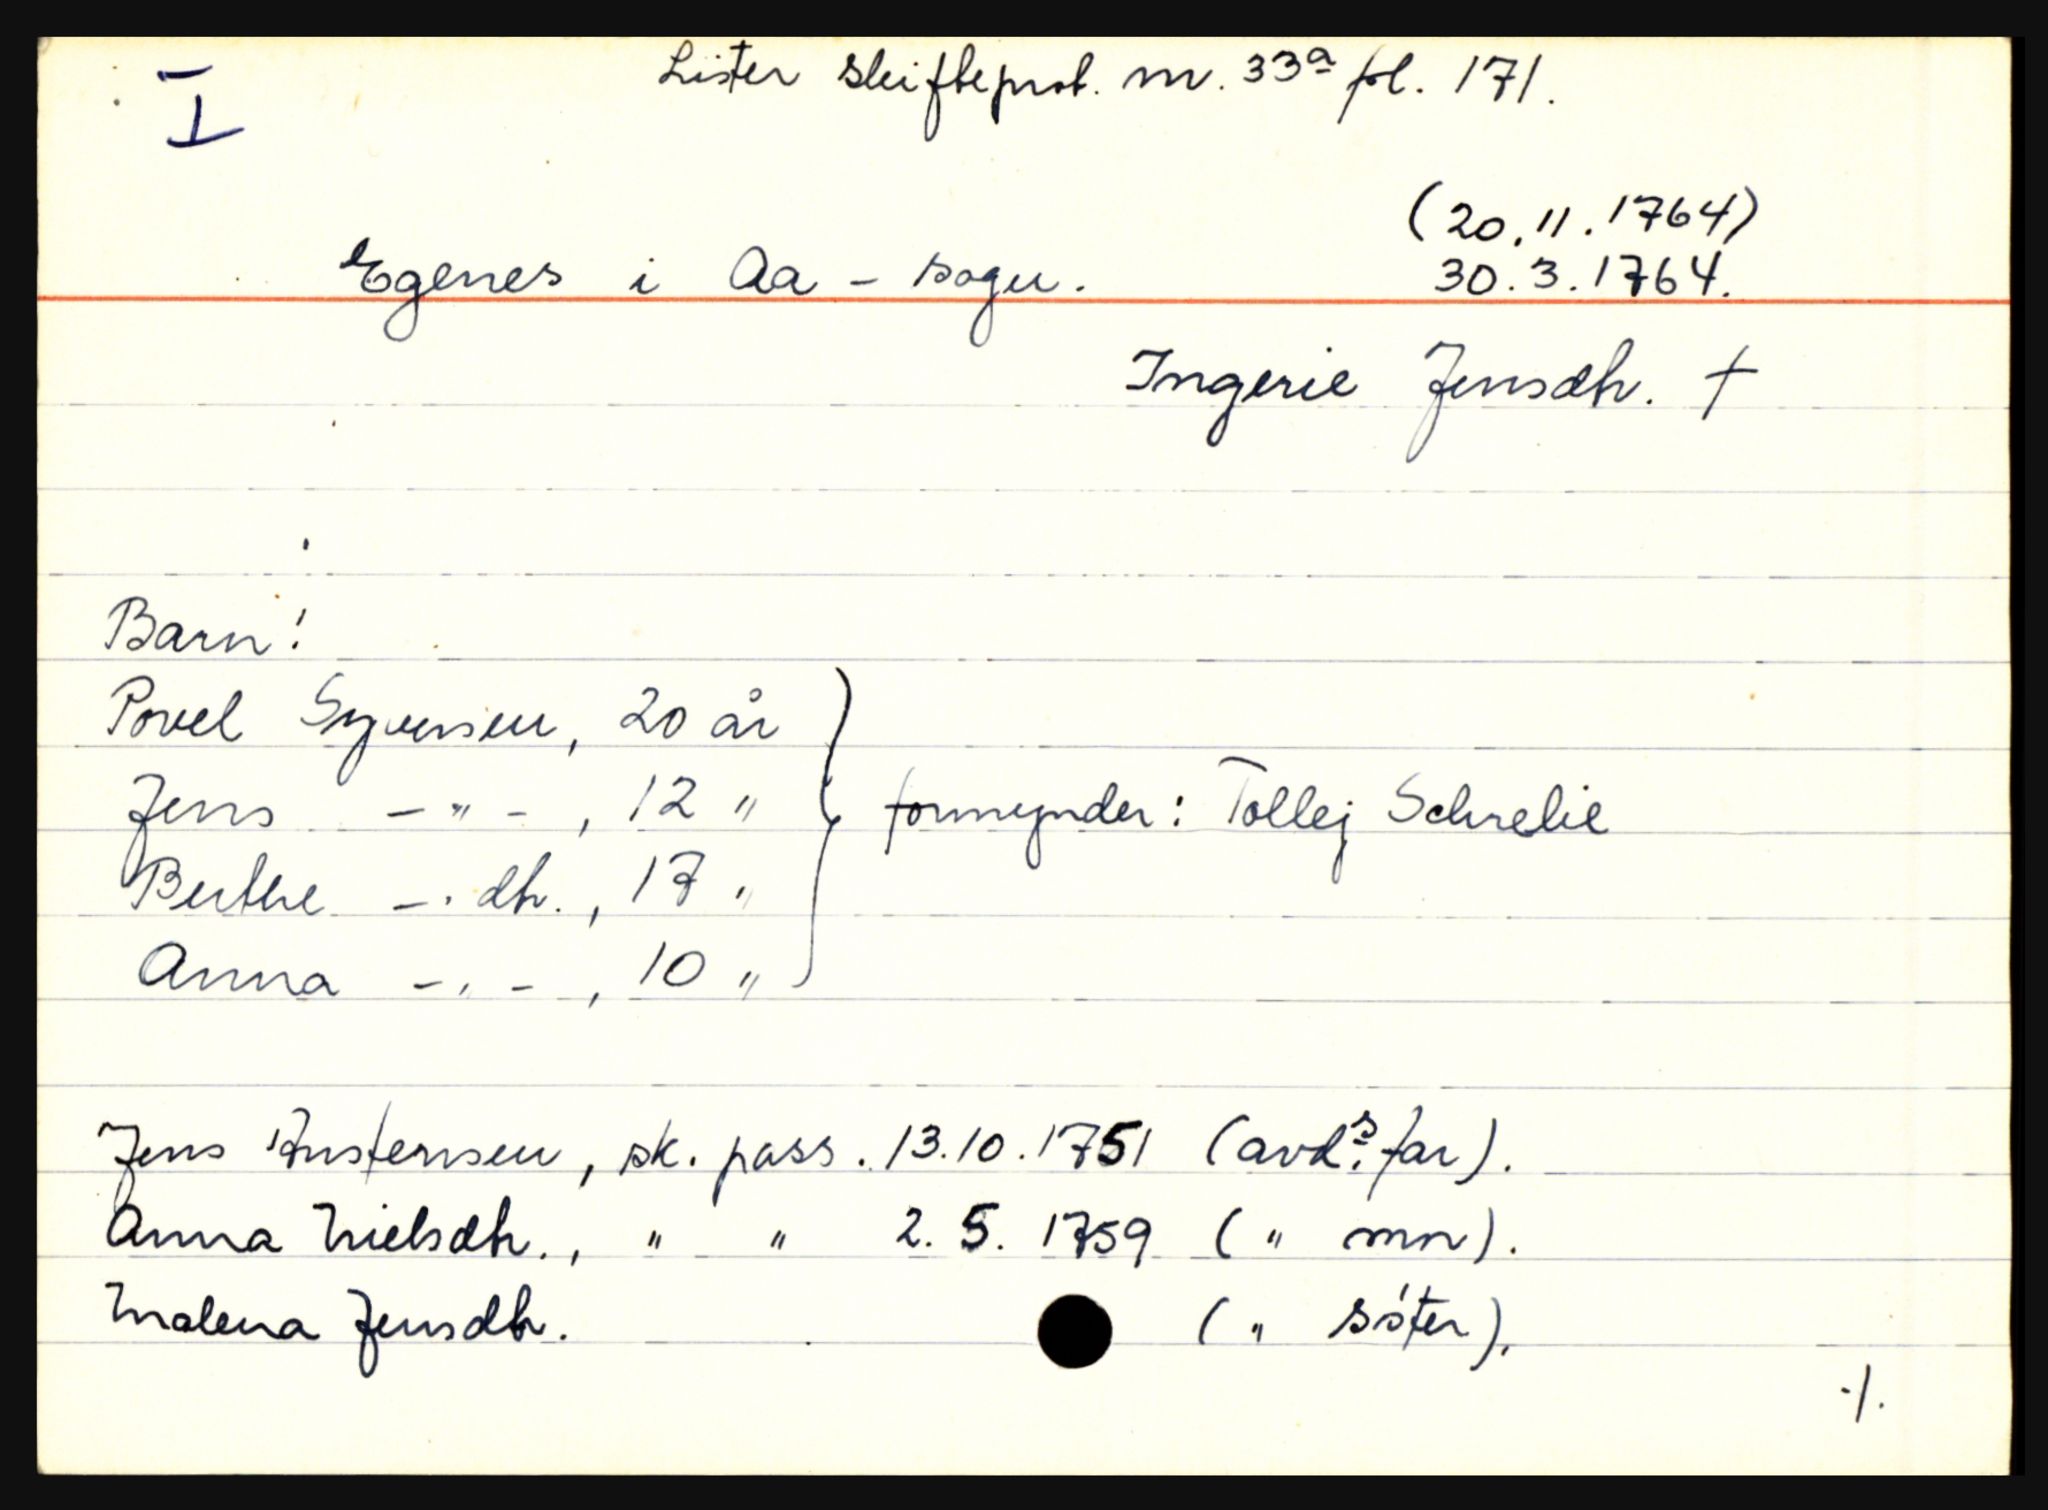 I
Lister skifteprot. nr. 33a fol. 171.
(20.11.1764)
Egenes i Aa - sogn. 30.3.1764.
Ingerie Jensdh. †
Barn:
Povel Syversen, 20 år
Jens - " - , 12 " formynder: Tollej Schrelie
Berthe - " dh., 17 "
Anna - " - , 10 "
Jens Austensen, sk. pass. 13.10.1751 (avds. far).
Anna Nielsdh., " " 2. 5. 1759 ( " mor).
Malena Jensdh. ( " söster).
./.